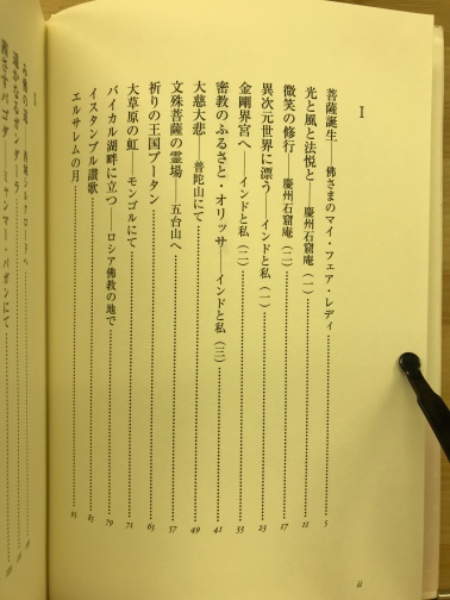 I
菩薩誕生——佛さまのマイ・フェア・レディ 5
光と風と法悦と——慶州石窟庵(一) 11
微笑の修行——慶州石窟庵(二) 17
異次元世界に漂う——インドと私(一) 23
金剛界宮へ——インドと私(二) 33
密教のふるさと・オリッサ——インドと私(三) 41
大慈大悲——普陀山にて 49
文殊菩薩の霊場 五台山へ 57
祈りの王国ブータン 65
大草原の虹 モンゴルにて 71
バイカル湖畔に立つ——ロシア佛教の地で 79
イスタンブル讃歌 85
エルサレムの月 93
ii
遥かなるガンダーラ
ミャンマー・パガンにて